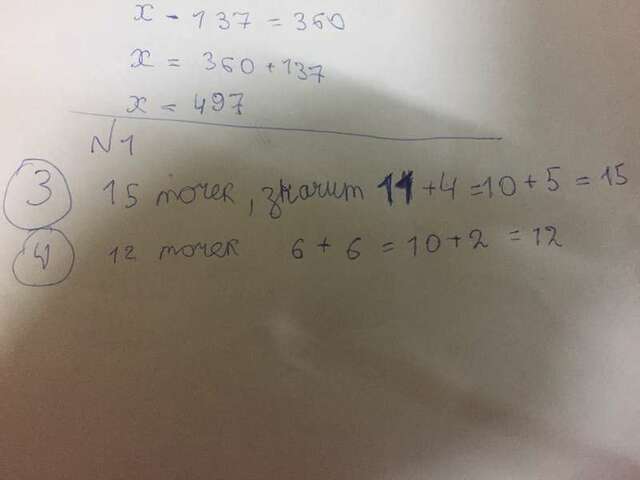 x - 137 = 360
x = 360 + 137
x = 497
N1
3 15 точек, значит 11 + 4 = 10 + 5 = 15
4 12 точек 6 + 6 = 10 + 2 = 12